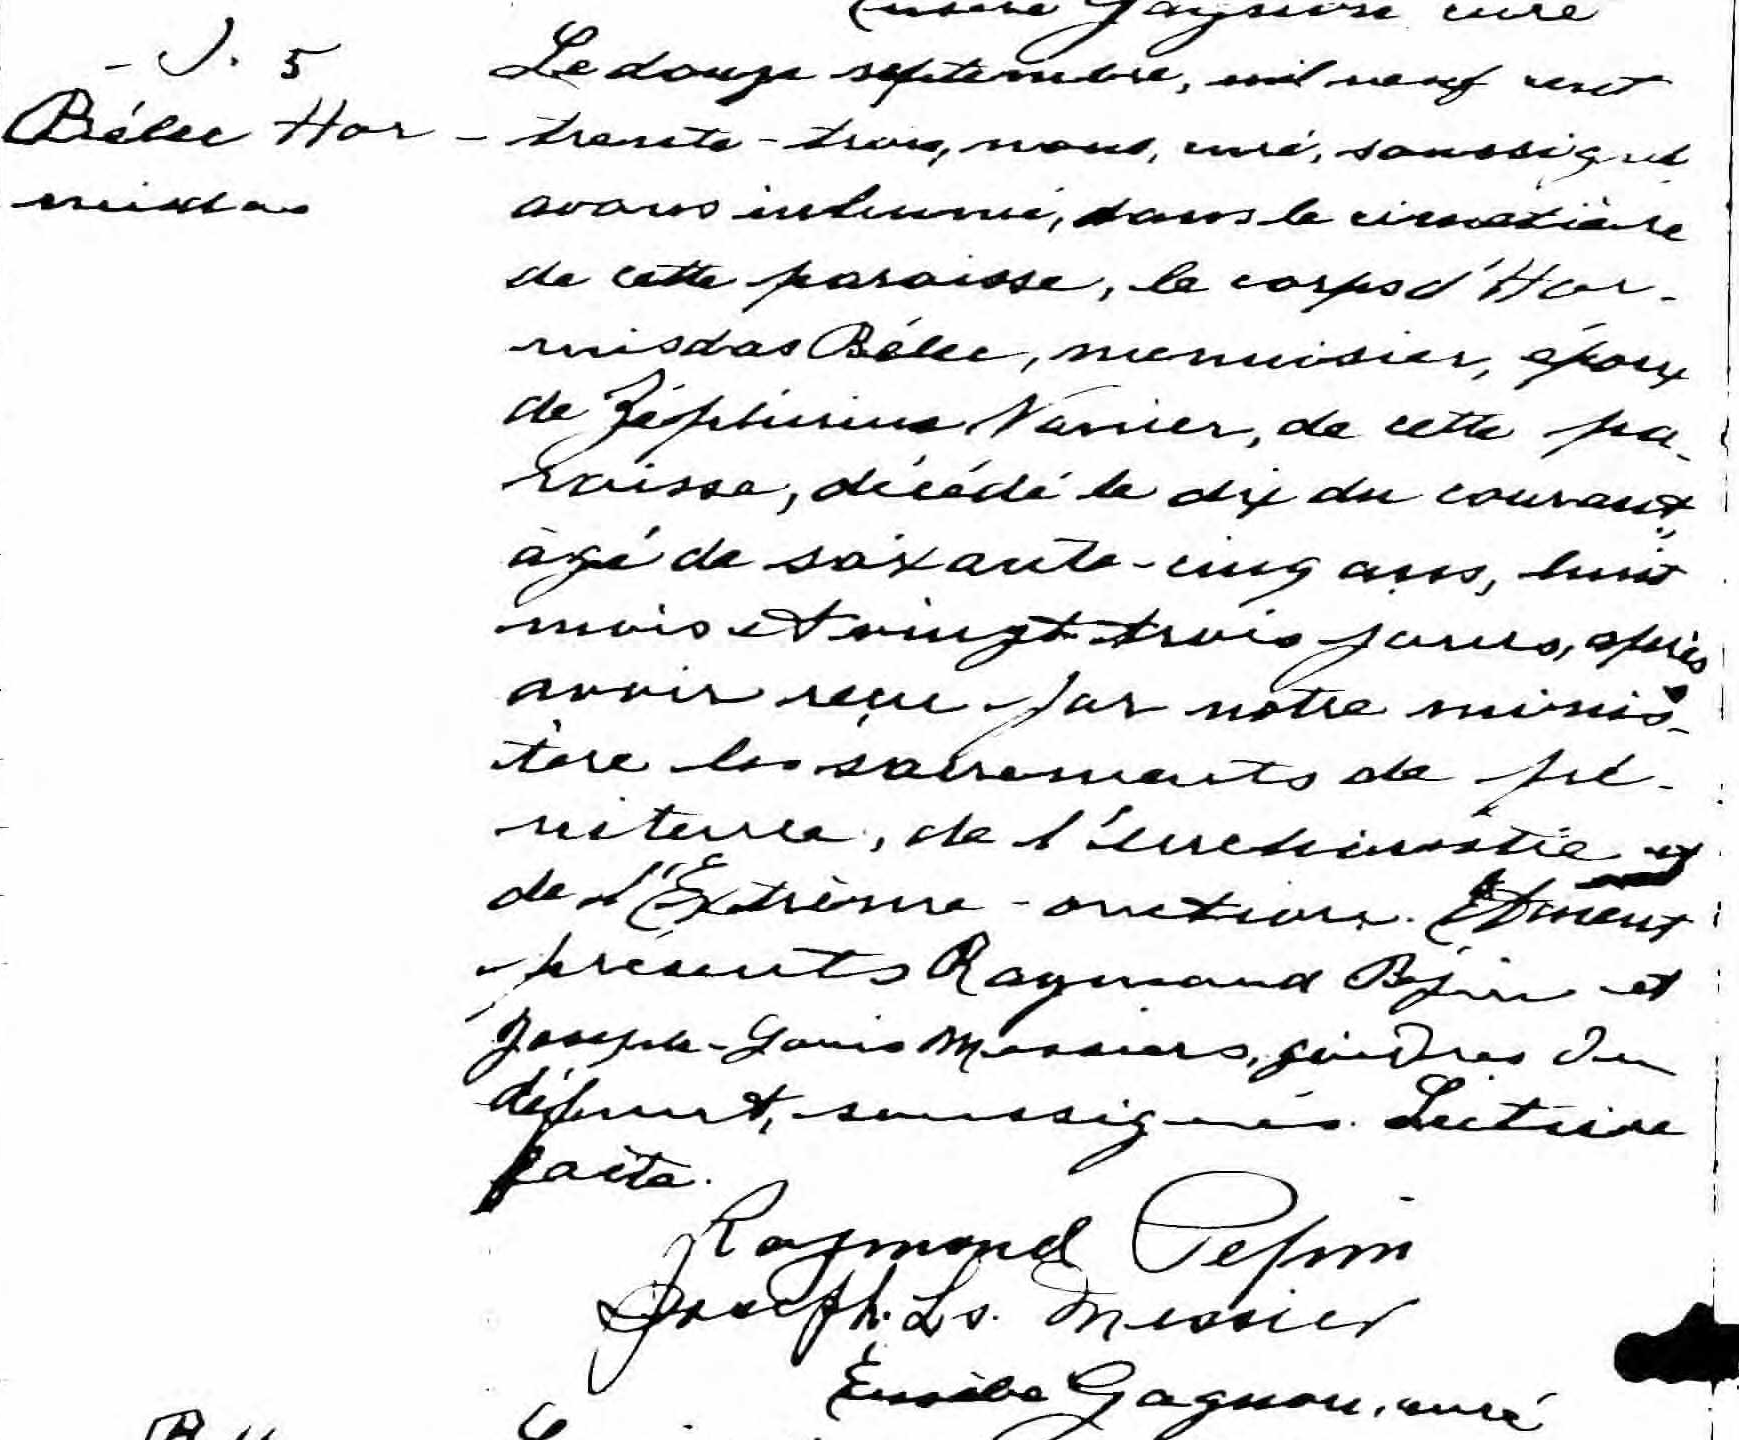 Eusèbe Gagnon curé
- S. 5
Bélec Hor-
misdas
Le douze septembre, mil neuf cent
trente-trois, nous, curé, soussigné
avons inhumé, dans le cimetière
de cette paroisse, le corps d'Hor-
misdas Bélec, menuisier, époux
de Zéphirina Vanier, de cette pa-
roisse, décédé le dix du courant,
âgé de soixante-cinq ans, huit
mois et vingt-trois jours, après
avoir reçu par notre minis-
tère les sacrements de pé-
nitence, de l'eucharistie et
de l'Extrême-onction. Étaient
présents Raymond Pépin et
Joseph-Louis Messiers, gendres du
défunt, soussignés. Lecture
faite.
Raymond Pepin
Joseph. Ls. Messier
Eusèbe Gagnon, curé